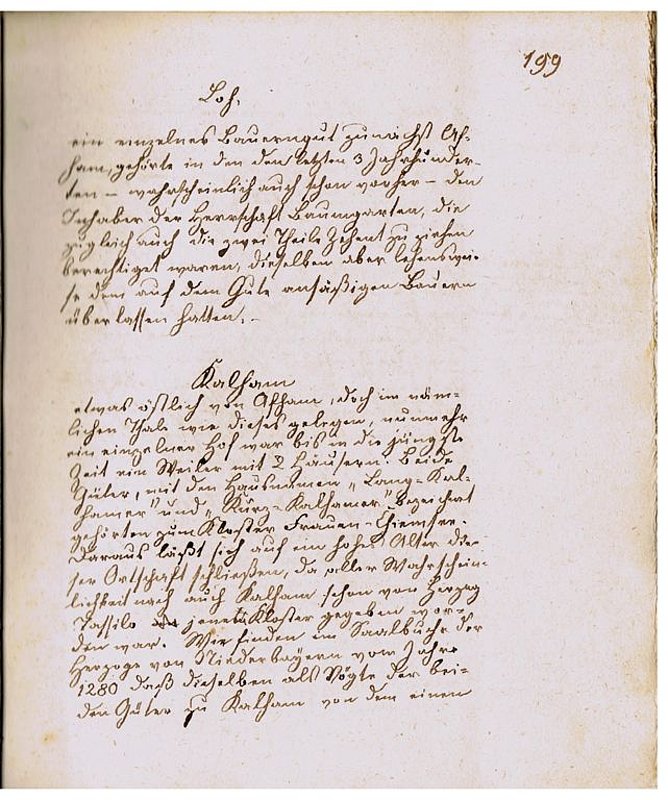 199
Loh.
ein einzelnes Bauerngut zunächst Af-
ham, gehörte in den den letzten 3 Jahrhunder-
ten – wahrscheinlich auch schon vorher – den
Inhaber der Herrschaft Baumgarten, die
zugleich auch die zwei Theile Zehent zu ziehen
berechtiget waren, dieselben aber lehenswei-
se dem auf dem Gute ansäßigen Bauern
überlassen hatten. –
Kalham
etwas östlich von Afham, doch im näm-
lichen Thale wie dieses gelegen, nunmehr
ein einzelner Hof war bis in die jüngste
Zeit ein Weiler mit 2 Häusern. Beide
Güter, mit den Hausnamen „Lang-Kal-
hamer" und „Kurz-Kalhamer" bezeichnet
gehörten zum Kloster Frauen-Chiemsee.
Daraus läßt sich auf ein hohes Alter die-
ser Ortschaft schließen, da aller Wahrschein-
lichkeit nach auch Kalham schon von Herzog
Tassilo jenem Kloster gegeben wor-
den war. Wir finden im Saalbuche der
Herzoge von Niederbayern vom Jahre
1280 daß dieselben als Vögte der bei-
den Güter zu Kalham von dem einen